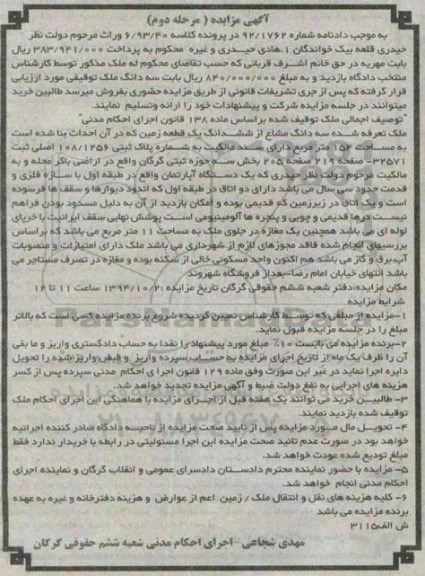 آگهی مزایده ( مرحله دوم)
به موجب دادنامه شماره ۹۲/۱۷۶۲ در پرونده کلاسه ۶/۹۳/۴۰ وراث مرحوم دولت نظر
حیدری قلعه بیک خواندگان ۱.هادی حیدری و غیره محکوم به پرداخت ۳۸۳/۹۴۱/۰۰۰ ریال
بابت مهریه در حق خانم اشرف قربانی که حسب تقاضای محکوم له ملک مذکور توسط کارشناس
منتخب دادگاه بازدید و به مبلغ ۸۴۰/۰۰۰/۰۰۰ ریال بابت سه دانگ ملک توقیفی مورد ارزیابی
قرار گرفته که پس از جری تشریفات قانونی از طریق مزایده حضوری بفروش میرسد طالبین خرید
میتوانند در جلسه مزایده شرکت و پیشنهادات خود را ارائه وتسلیم نمایند.
"توصیف اجمالی ملک توقیف شده براساس ماده ۱۳۸ قانون اجرای احکام مدنی"
ملک تعرفه شده سه دانگ مشاع از ششدانگ یک قطعه زمین که در آن احداث بنا شده است
به مساحت ۱۵۴ متر مربع دارای سند مالکیت به شماره پلاک ثبتی ۱۰۸/۱۲۵۶ اصلی ثبت
۳۲۵۷۱- صفحه ۲۱۹ صفحه ۲۰۵ بخش سه حوزه ثبتی گرگان واقع در اراضی باکر محله و به
مالکیت مرحوم دولت نظر حیدری که یک دستگاه آپارتمان واقع در طبقه اول با سازه فلزی و
قدمت حدود سی سال می باشد دارای دو اتاق در طبقه اول که اندود دیوارها و سقف ها فرسوده
است و یک اتاق در زیرزمین که قدیمی بوده و امکان بازدید از آن به دلیل مسدود بودن فراهم
نیست درها قدیمی و چوبی و پنجره ها آلومینیومی است پوشش نهایی سقف ایرانیت با خرپای
لوله ای می باشد همچنین یک مغازه در جلوی ملک به مساحت ۱۱ متر مربع می باشد که براساس
بررسیهای انجام شده فاقد مجوزهای لازم از شهرداری می باشد ملک دارای امتیازات و منصوبات
آب،برق و گاز می باشد هم اکنون واحد مسکونی خالی از سکنه بوده و مغازه در تصرف مستاجر می
باشد انتهای خیابان امام رضا-بعداز فروشگاه شهروند
مکان مزایده:دفتر شعبه ششم حقوقی گرگان تاریخ مزایده ۱۳۹۴/۱۰/۲۰ ساعت ۱۱ تا ۱۲
شرایط مزایده
۱-مزایده از مبلغی که توسط کارشناس تعیین گردیده شروع برنده مزایده کسی است که بالاتر
مبلغ را در جلسه مزایده قبول نماید.
۲-برنده مزایده می بایست ۱۰٪ مبلغ مورد پیشنهاد را نقدا به حساب دادگستری واریز و ما بقی
آن را ظرف یک ماه از تاریخ اجرای مزایده به حساب سپرده واریز و قبض واریز شده را تحویل
دایره اجرا نماید در غیر این صورت وفق ماده ۱۲۹ قانون اجرا ی احکام مدنی سپرده پس از کسر
هزینه های اجرایی به نفع دولت ضبط و آگهی مزایده تجدید خواهد شد.
۳- طالبین خرید می توانند یک هفته قبل از اجرای مزایده با هماهنگی این اجرای احکام ملک
توقیف شده بازدید نمایند.
۴- تحویل مال مورد مزایده پس از تایید صحت مزایده از ناحیه دادگاه صادر کننده اجرائیه
خواهد بود در صورت عدم تائید صحت مزایده این اجرا مسئولیتی در رابطه با خریدار ندارد فقط
مبلغ تودیع شده عودت خواهد شد.
۵- مزایده با حضور نماینده محترم دادستان دادسرای عمومی و انقلاب گرگان و نماینده اجرای
احکام مدنی انجام خواهد شد.
۶- کلیه هزینه های نقل و انتقال ملک / زمین اعم از عوارض و هزینه دفترخانه و غیره به عهده
برنده مزایده می باشد
ش الف۳۱۱۵
مهدی شجاعی-اجرای احکام مدنی شعبه ششم حقوقی گرگان